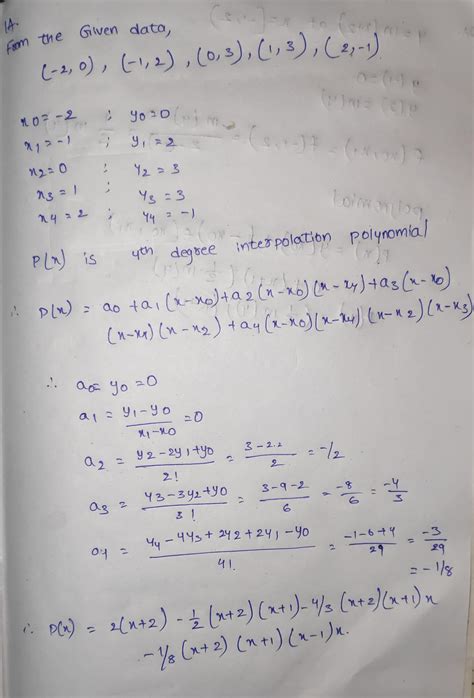 1A.
From the Given data,
(-2, 0), (-1, 2), (0, 3), (1, 3), (2, -1)
x0 = -2 ; y0 = 0
x1 = -1 ; y1 = 2
x2 = 0 ; y2 = 3
x3 = 1 ; y3 = 3
x4 = 2 ; y4 = -1
P(x) is 4th degree interpolation polynomial
∴ P(x) = a0 + a1(x-x0) + a2(x-x0)(x-x1) + a3(x-x0)
(x-x1)(x-x2) + a4(x-x0)(x-x1)(x-x2)(x-x3)
∴ a0 = y0 = 0
a1 = y1-y0 / x1-x0 = 0
a2 = y2-2y1+y0 / 2! = 3-2.2 / 2 = -1/2
a3 = y3-3y2+y0 / 3! = 3-9-2 / 6 = -8/6 = -4/3
a4 = y4-4y3+2y2+2y1-y0 / 4! = -1-6+4 / 29 = -3/29
= -1/8
∴ P(x) = 2(x+2) - 1/2 (x+2)(x+1) - 4/3 (x+2)(x+1)x
- 1/8 (x+2)(x+1)(x-1)x.